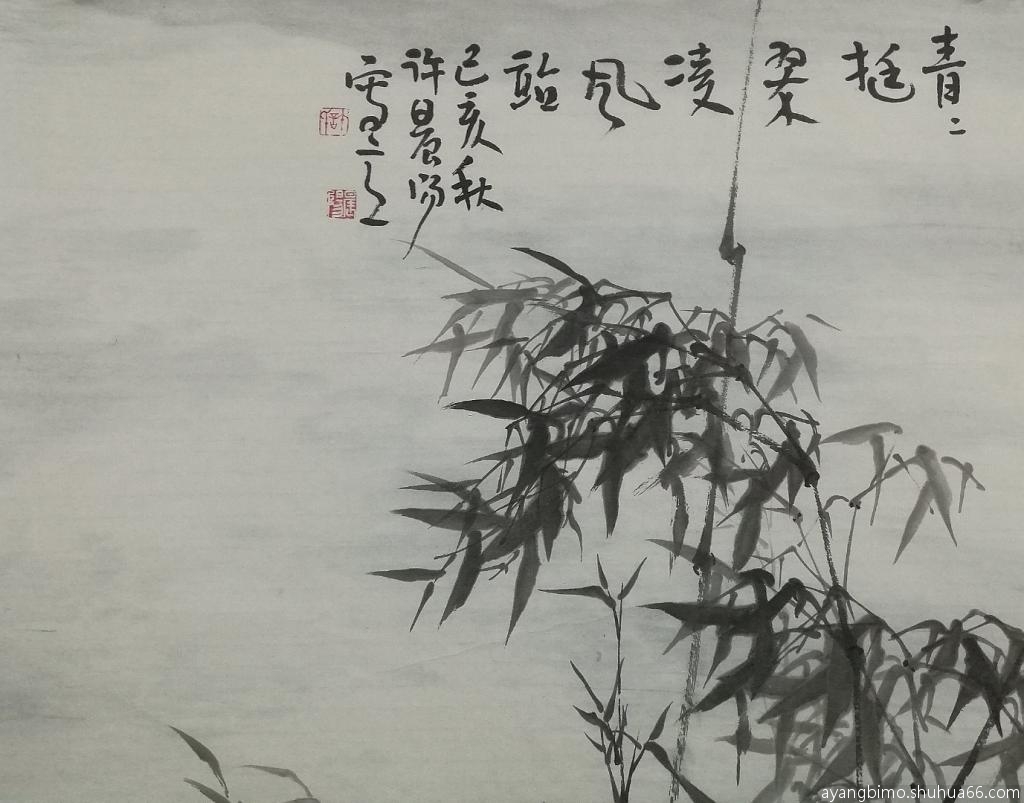 青〻挺翠凌风
己亥秋
许晨阳
ayangbimo.shuhua66.com